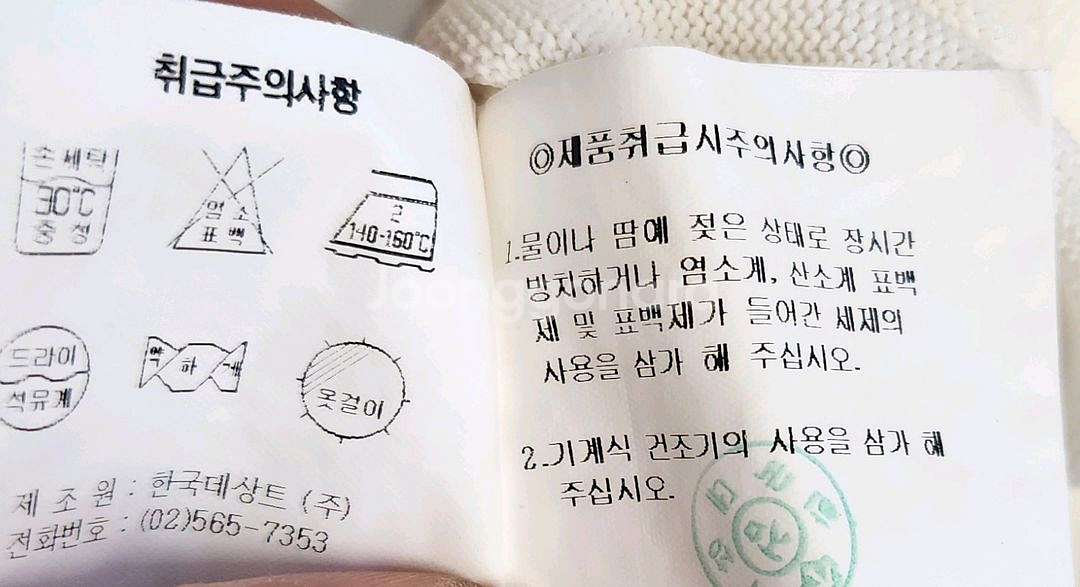 취급주의사항
손세탁
30℃
중성
염소
표백
2
140-160℃
드라이
석유계
약하게
옷걸이
제조원 : 한국데상트 (주)
전화번호 : (02)565-7353
◎제품취급시주의사항◎
1.물이나 땀에 젖은 상태로 장시간
방치하거나 염소계, 산소계 표백
제 및 표백제가 들어간 세제의
사용을 삼가 해 주십시오.
2.기계식 건조기의 사용을 삼가 해
주십시오.